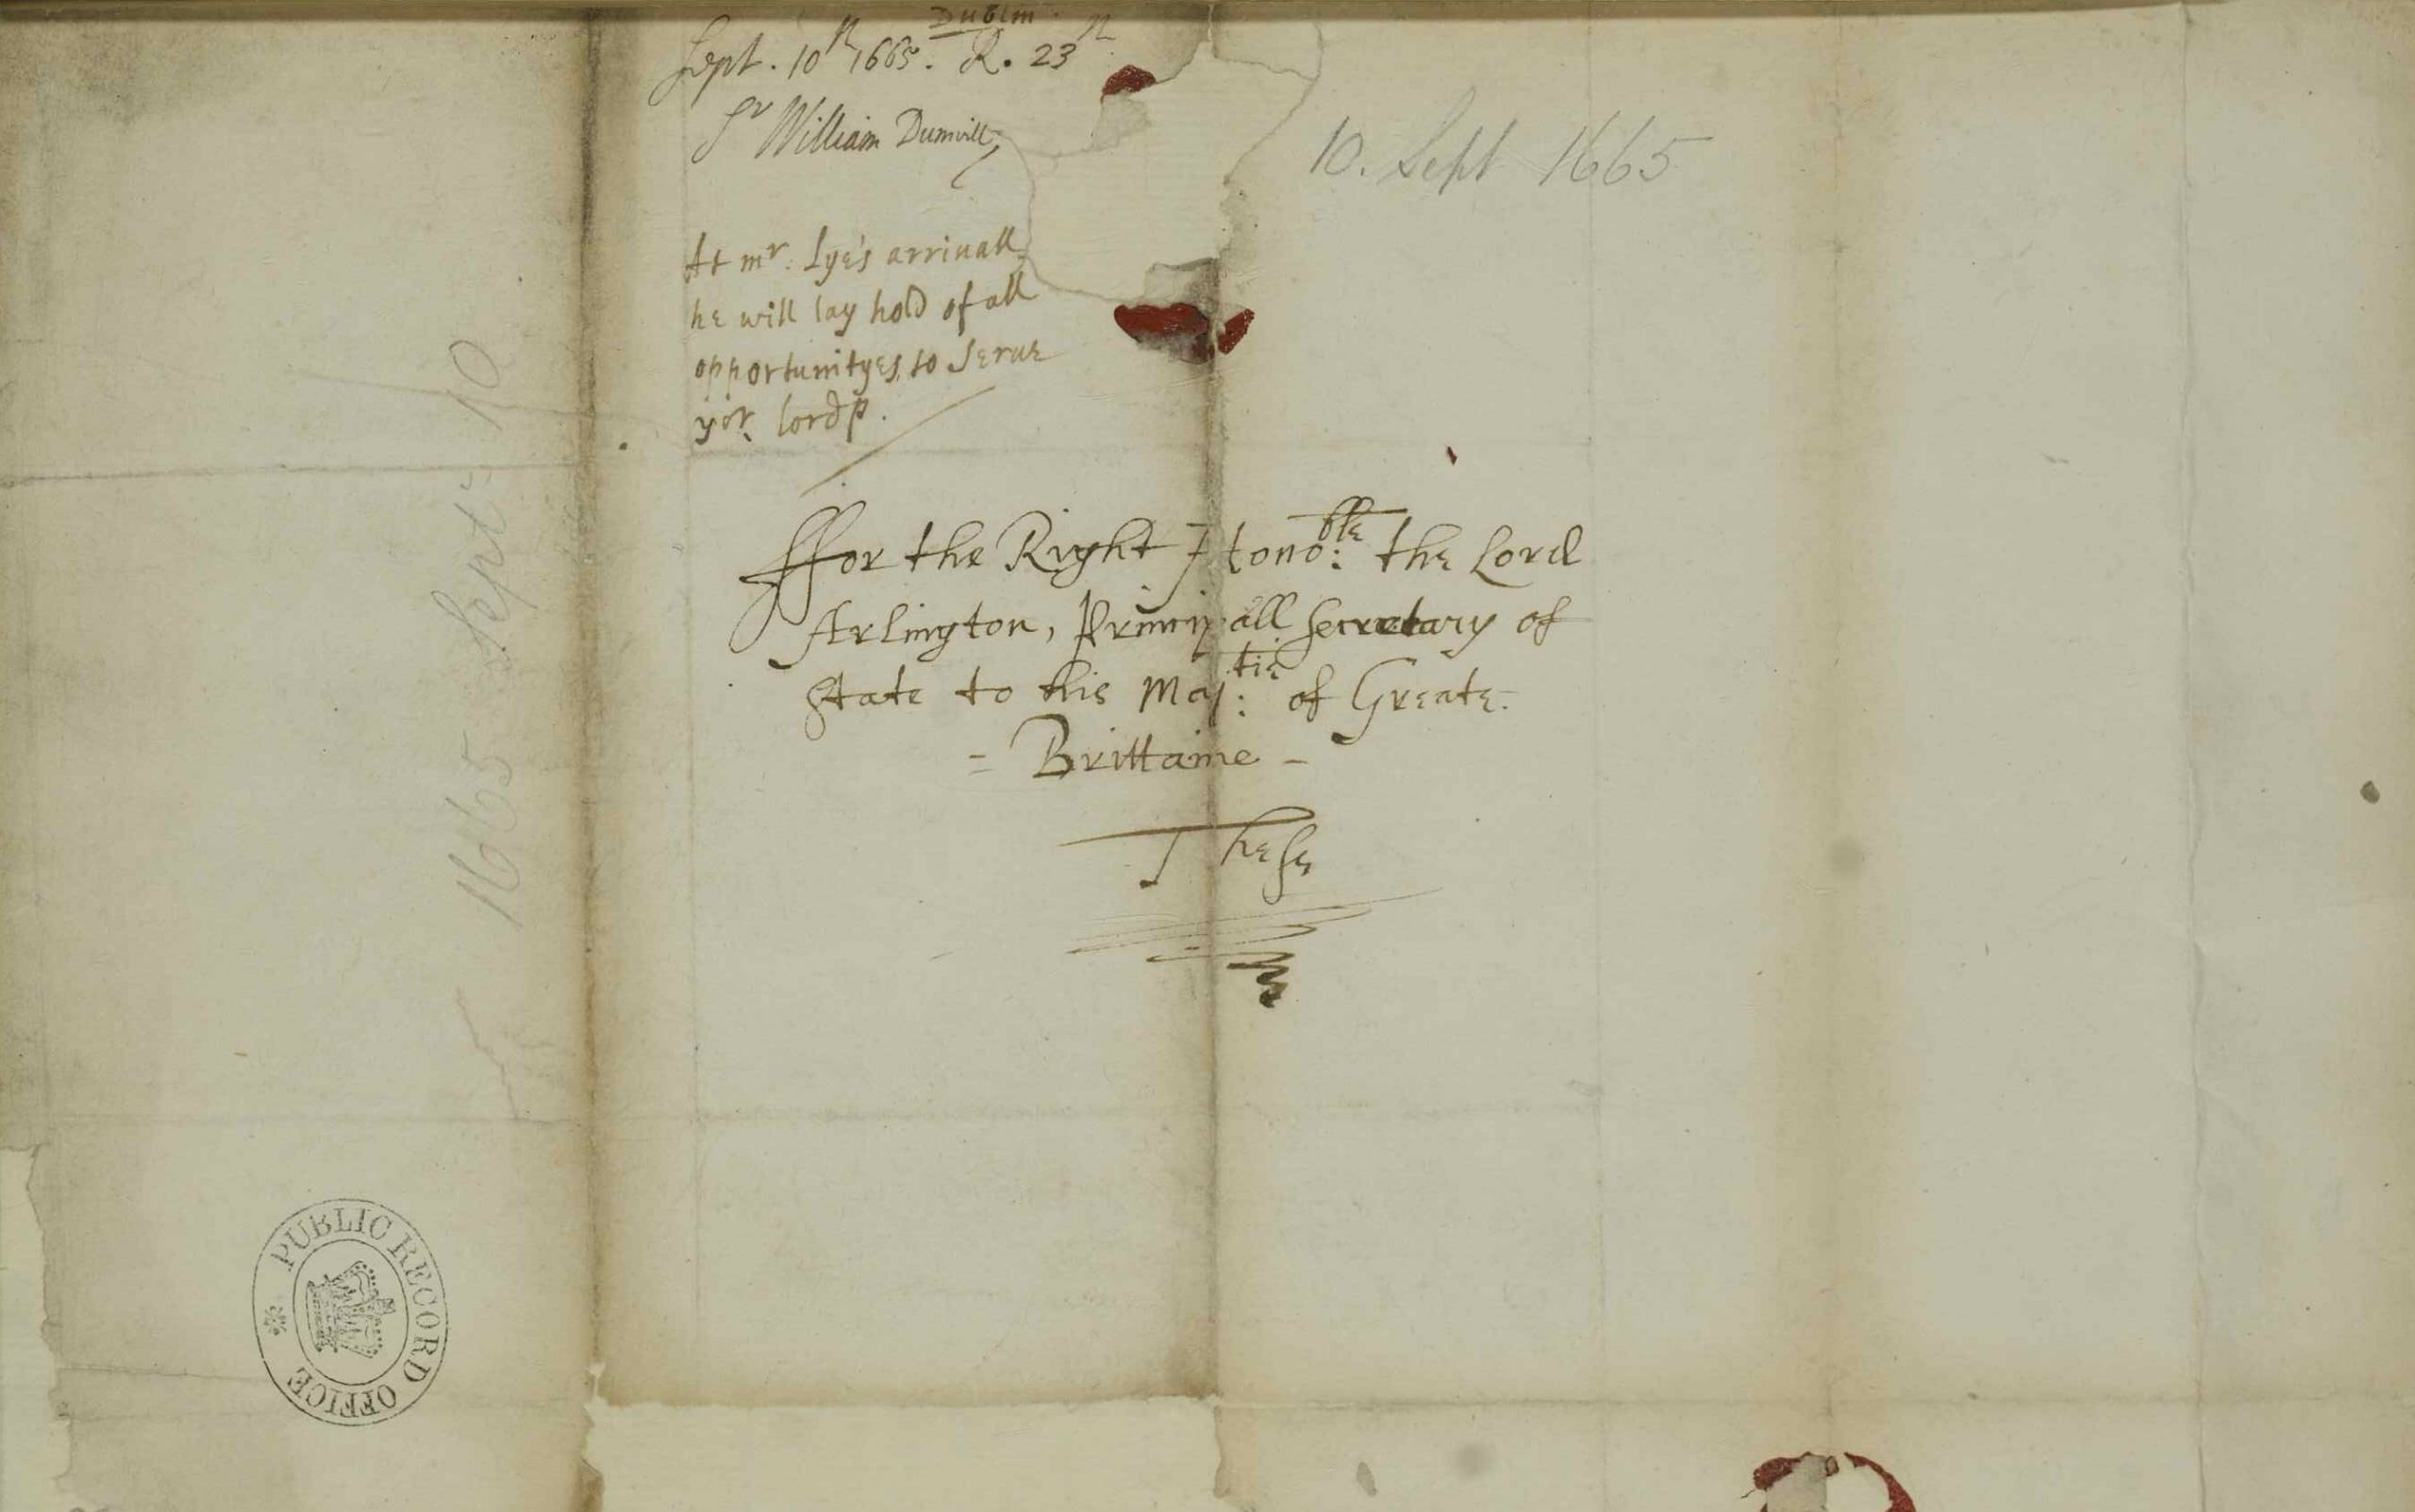 Dublin.
Sept. 10th 1665. R. 23th
Sr William Dumvill
At mr. Lye's arriuall
he will lay hold of all
opportunityes to serue
yor. lordp.
10. Sept 1665
1665 Sept 10
ffor the Right Hono:ble the Lord
Arlington, Principall Secretary of
State to his Maj:tie of Greate
= Brittaine -
These
PUBLIC RECORD OFFICE